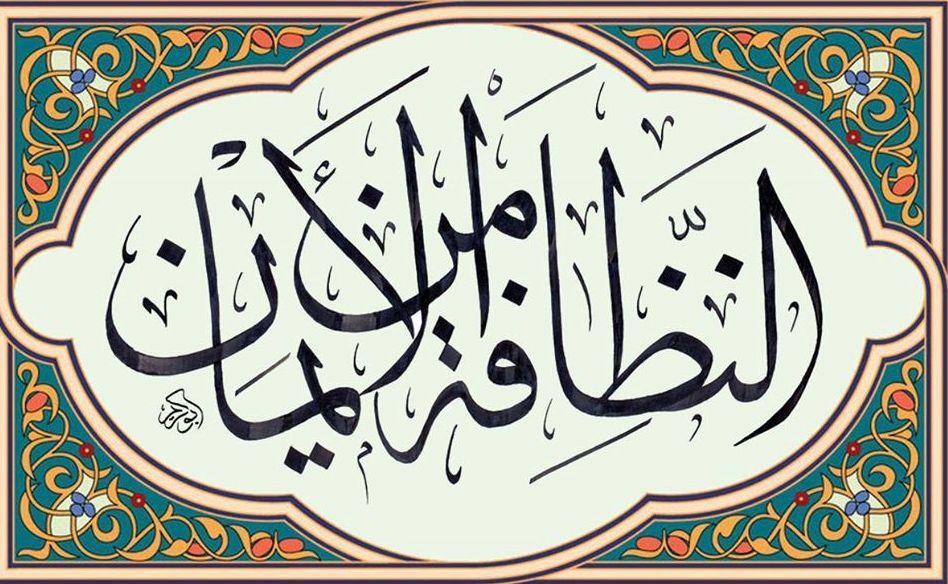 النَّظافة من الأيمان